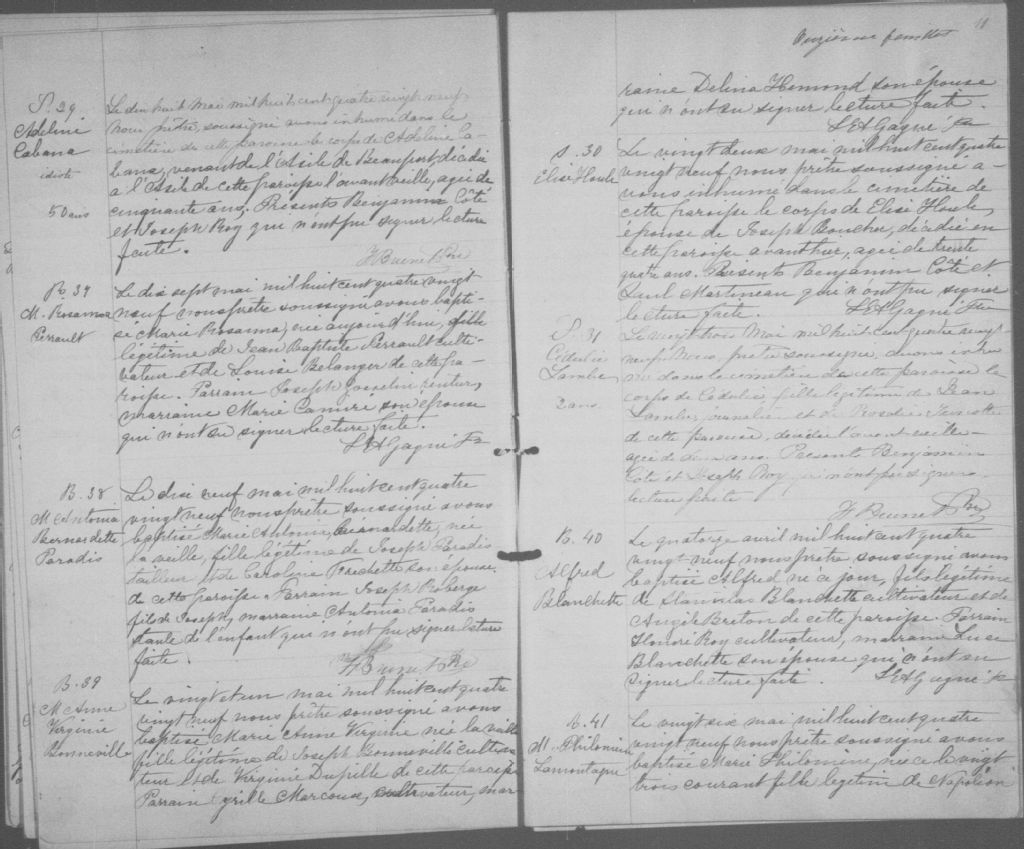 S. 29
Adeline
Cabana
idiote
50 ans
Le dix huit mai mil huit cent quatre vingt neuf
Nous prêtre, soussigné avons inhumé dans le
cimetière de cette paroisse le corps de Adeline Ca-
bana, venant de l'Asile de Beauport, décédée
à l'Asile de cette paroisse l'avant veille, agée de
cinquante ans. Présents Benjamin Côté
et Joseph Roy qui n'ont pu signer lecture
faite.
F Brunet Ptre
B. 37
M. Rosanna
Perrault
Le dix sept mai mil huit cent quatre vingt
neuf nous prêtre soussigné avons bapti-
sé Marie Rosanna, née aujourd'hui, fille
légitime de Jean Baptiste Perrault culti-
vateur et de Louise Belanger de cette pa-
roisse. Parrain Joseph Josselin rentier,
marraine Marie Camiré son épouse
qui n'ont su signer lecture faite.
L A Gagné Ptr
B. 38
M. Antonia
Bernadette
Paradis
Le dix neuf mai mil huit cent quatre
vingt neuf nous prêtre soussigné avons
baptisé Marie Antonia Bernadette, née
la veille, fille légitime de Joseph Paradis
tailleur et de Caroline Frechette son épouse
de cette paroisse. Parrain Joseph Roberge
fils de Joseph, marraine Antonia Paradis
tante de l'enfant qui n'ont pu signer lecture
faite.
F Brunet Ptre
B. 39
M. Anne
Virginie
Bonneville
Le vingt et un mai mil huit cent quatre
vingt neuf nous prêtre soussigné avons
baptisé Marie Anne Virginie née la veille
fille légitime de Joseph Bonneville cultiva
teur et de Virginie Dupille de cette paroisse
Parrain Cyrille Marcoux, cultivateur, mar-
11
Onzième feuillet
raine Delina Hemond son épouse
qui n'ont su signer lecture faite.
L A Gagné Ptr
S. 30
Elise Houle
Le vingt deux mai mil huit cent quatre
vingt neuf nous prêtre soussigné a-
vons inhumé dans le cimetière de
cette paroisse le corps de Elise Houle,
épouse de Joseph Boucher, décédée en
cette paroisse avant hier, agée de trente
quatre ans. Présents Benjamin Côté et
Paul Martineau qui n'ont pu signer
lecture faite.
L A Gagné Ptr
S. 31
Cédulie
Lambert
2 ans
Le vingt trois Mai mil huit cent quatre vingt
neuf, Nous, prêtre soussigné, avons inhu
mé dans le cimetière de cette paroisse le
corps de Cédulie, fille légitime de Jean
Lambert, journalier et de Rosalie
de cette paroisse, décédée l'avant veille
agée de deux ans. Présents Benjamin
Côté et Joseph Roy qui n'ont pu signer
lecture faite
F Brunet Ptre
B. 40
Alfred
Blanchette
Le quatorze avril mil huit cent quatre
vingt neuf nous prêtre soussigné avons
baptisé Alfred né ce jour, fils légitime
de Stanislas Blanchette cultivateur et de
Angèle Breton de cette paroisse. Parrain
Honoré Roy cultivateur, marraine Lucie
Blanchette son épouse qui n'ont su
signer lecture faite.
L A Gagné Ptr
B. 41
M. Philomène
Lamontagne
Le vingt six mai mil huit cent quatre
vingt neuf nous prêtre soussigné avons
baptisé Marie Philomène, née le vingt
trois courant fille légitime de Napoléon